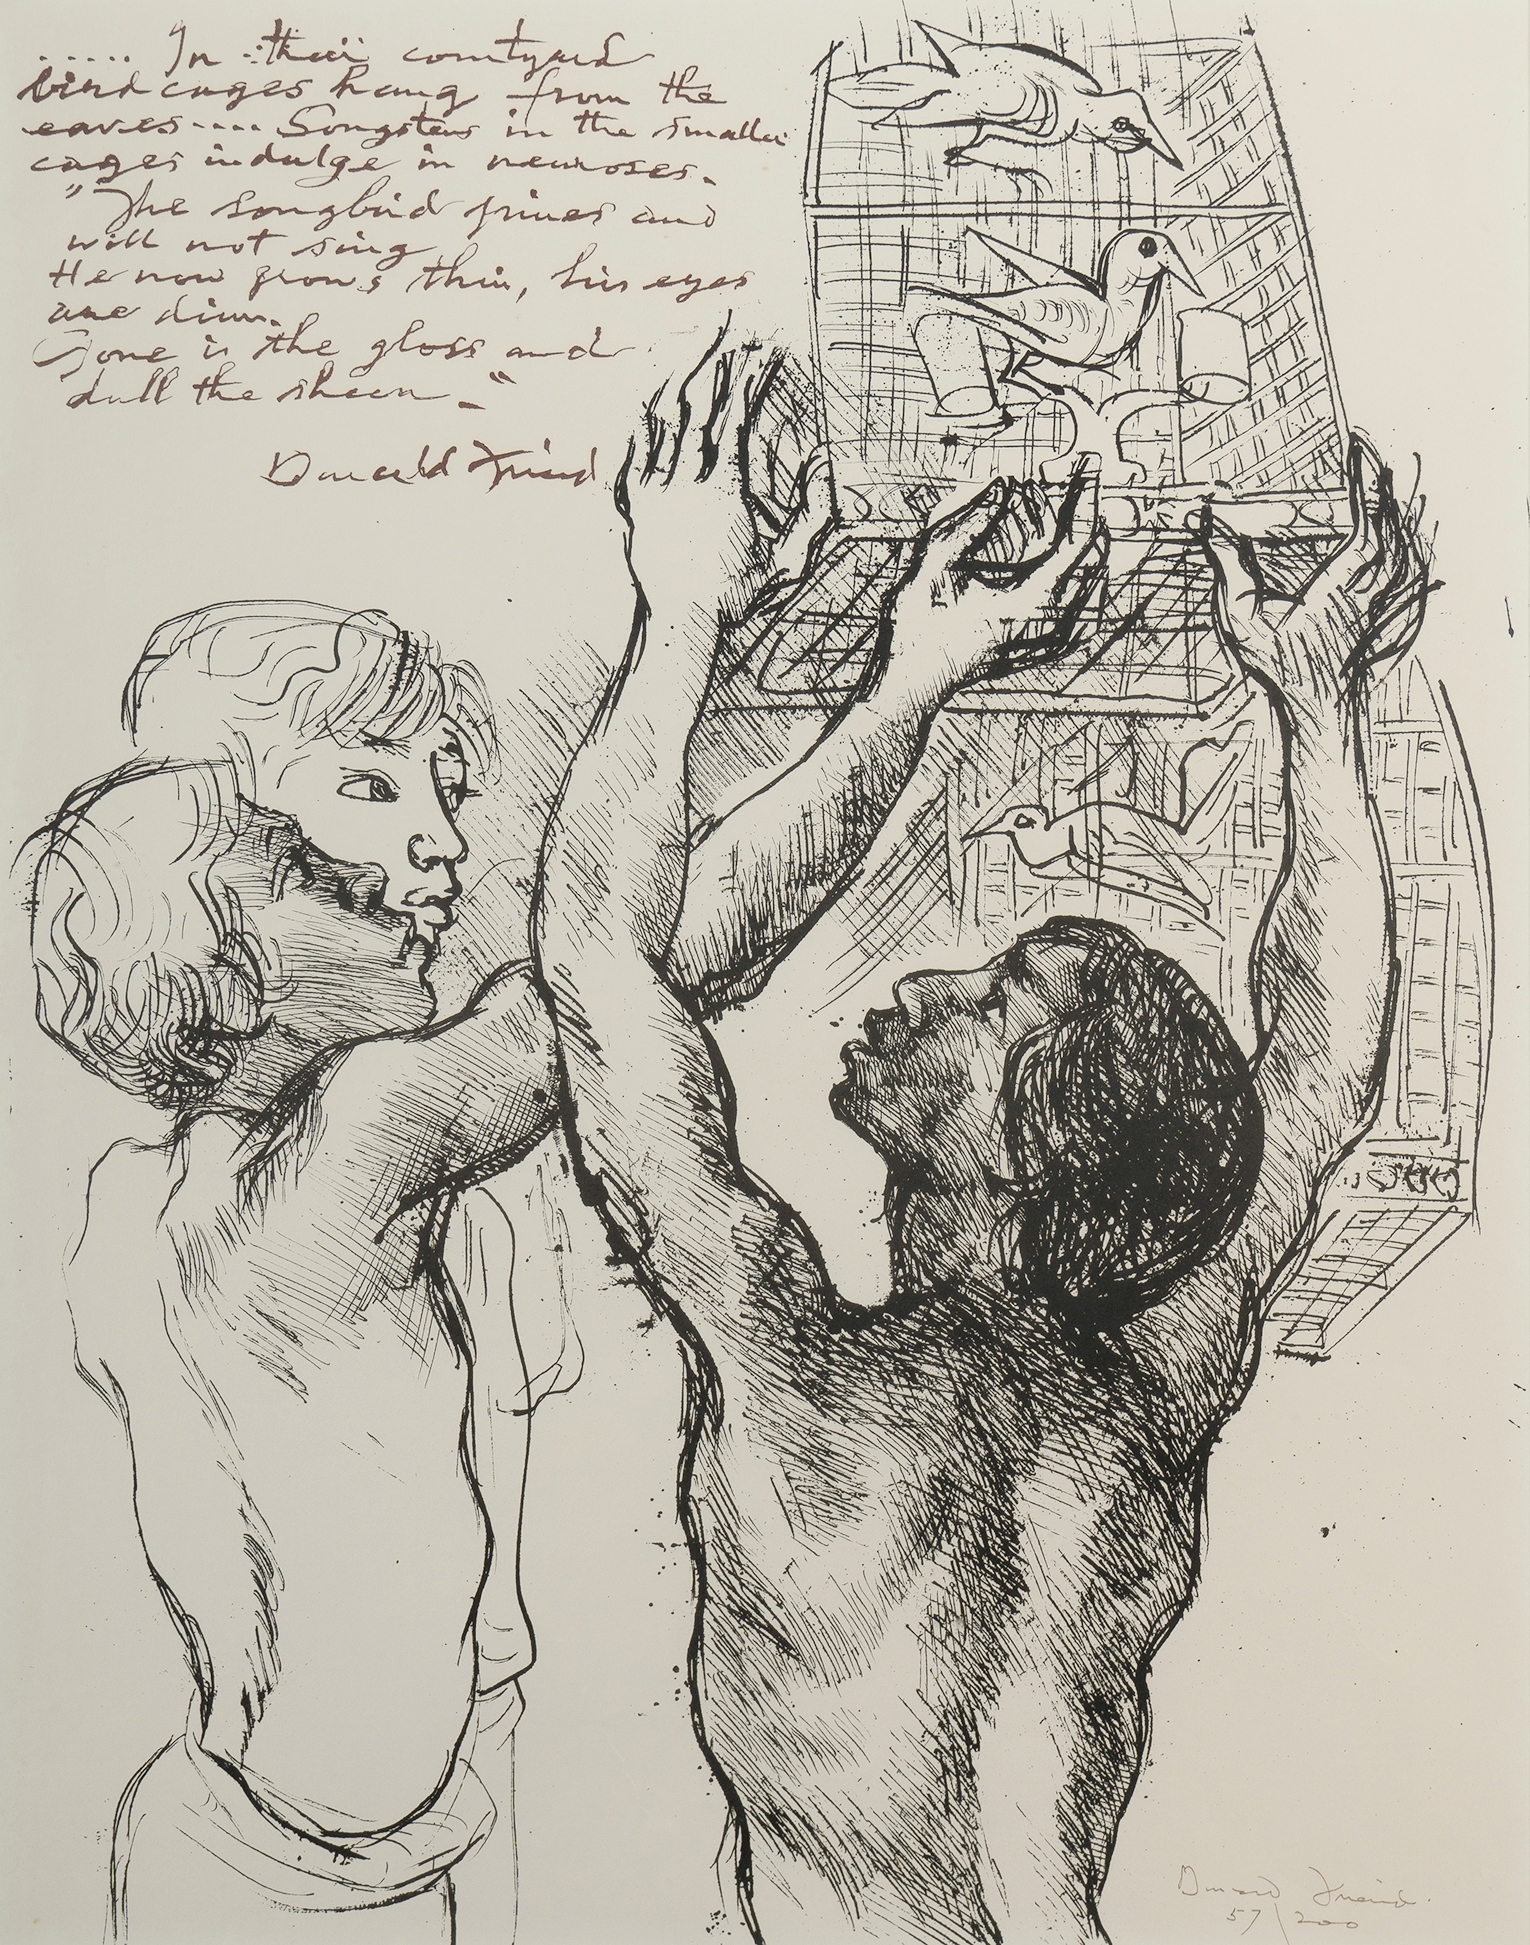 ..... In their courtyard
bird cages hang from the
eaves.... Songsters in the smaller
cages indulge in neuroses.
"The songbird pines and
will not sing
He now grows thin, his eyes
are dim.
Gone is the gloss and
dull the sheen."
Donald Friend
Donald Friend.
57/200